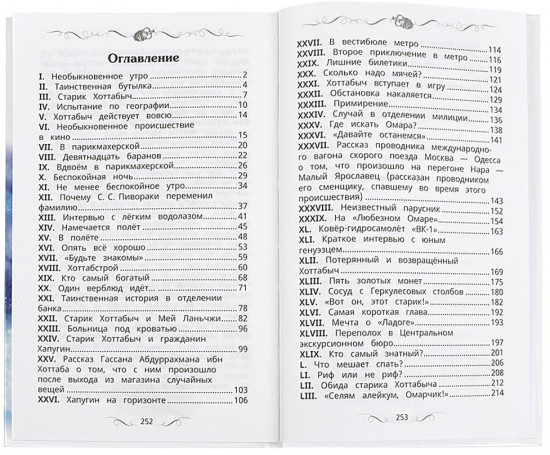 Оглавление
I. Необыкновенное утро 2
II. Таинственная бутылка 4
III. Старик Хоттабыч 7
IV. Испытание по географии 10
V. Хоттабыч действует вовсю 14
VI. Необыкновенное происшествие
в кино 15
VII. В парикмахерской 20
VIII. Девятнадцать баранов 22
IX. Вдвоём в парикмахерской 26
X. Беспокойная ночь 29
XI. Не менее беспокойное утро 34
XII. Почему С. С. Пивораки переменил
фамилию 37
XIII. Интервью с лёгким водолазом 41
XIV. Намечается полёт 45
XV. В полёте 48
XVI. Опять всё хорошо 53
XVII. «Будьте знакомы» 59
XVIII. Хоттабстрой 60
XIX. Кто самый богатый 68
XX. Один верблюд идёт... 71
XXI. Таинственная история в отделении
банка 78
XXII. Старик Хоттабыч и Мей Ланьчжи 82
XXIII. Больница под кроватью 96
XXIV. Старик Хоттабыч и гражданин
Хапугин 99
XXV. Рассказ Гассана Абдуррахмана ибн
Хоттаба о том, что с ним произошло
после выхода из магазина случайных
вещей 103
XXVI. Хапугин на горизонте 106
252
XXVII. В вестибюле метро 114
XXVIII. Второе приключение в метро 116
XXIX. Лишние билетики 119
XXX. Сколько надо мячей? 121
XXXI. Хоттабыч вступает в игру 124
XXXII. Обстановка накаляется 130
XXXIII. Примирение 134
XXXIV. Случай в отделении милиции 136
XXXV. Где искать Омара? 138
XXXVI. «Давайте останемся» 141
XXXVII. Рассказ проводника международно-
го вагона скорого поезда Москва — Одесса
о том, что произошло на перегоне Нара —
Малый Ярославец (рассказан проводником
его сменщику, спавшему во время этого
происшествия) 143
XXXVIII. Неизвестный парусник 152
XXXIX. На «Любезном Омаре» 154
XL. Ковёр-гидросамолёт «ВК-1» 163
XLI. Краткое интервью с юным
генуэзцем 166
XLII. Потерянный и возвращённый
Хоттабыч
XLIII. Пять золотых монет
XLIV. Сосуд с Геркулесовых столбов 180
XLV. «Вот он, этот старик!» 182
XLVI. Самая короткая глава
XLVII. Мечта о «Ладоге»
XLVIII. Переполох в Центральном
экскурсионном бюро 197
XLIX. Кто самый знатный? 201
L. Что мешает спать? 206
LI. Риф или не риф? 208
LII. Обида старика Хоттабыча 212
LIII. «Селям алейкум, Омарчик!» 214
253